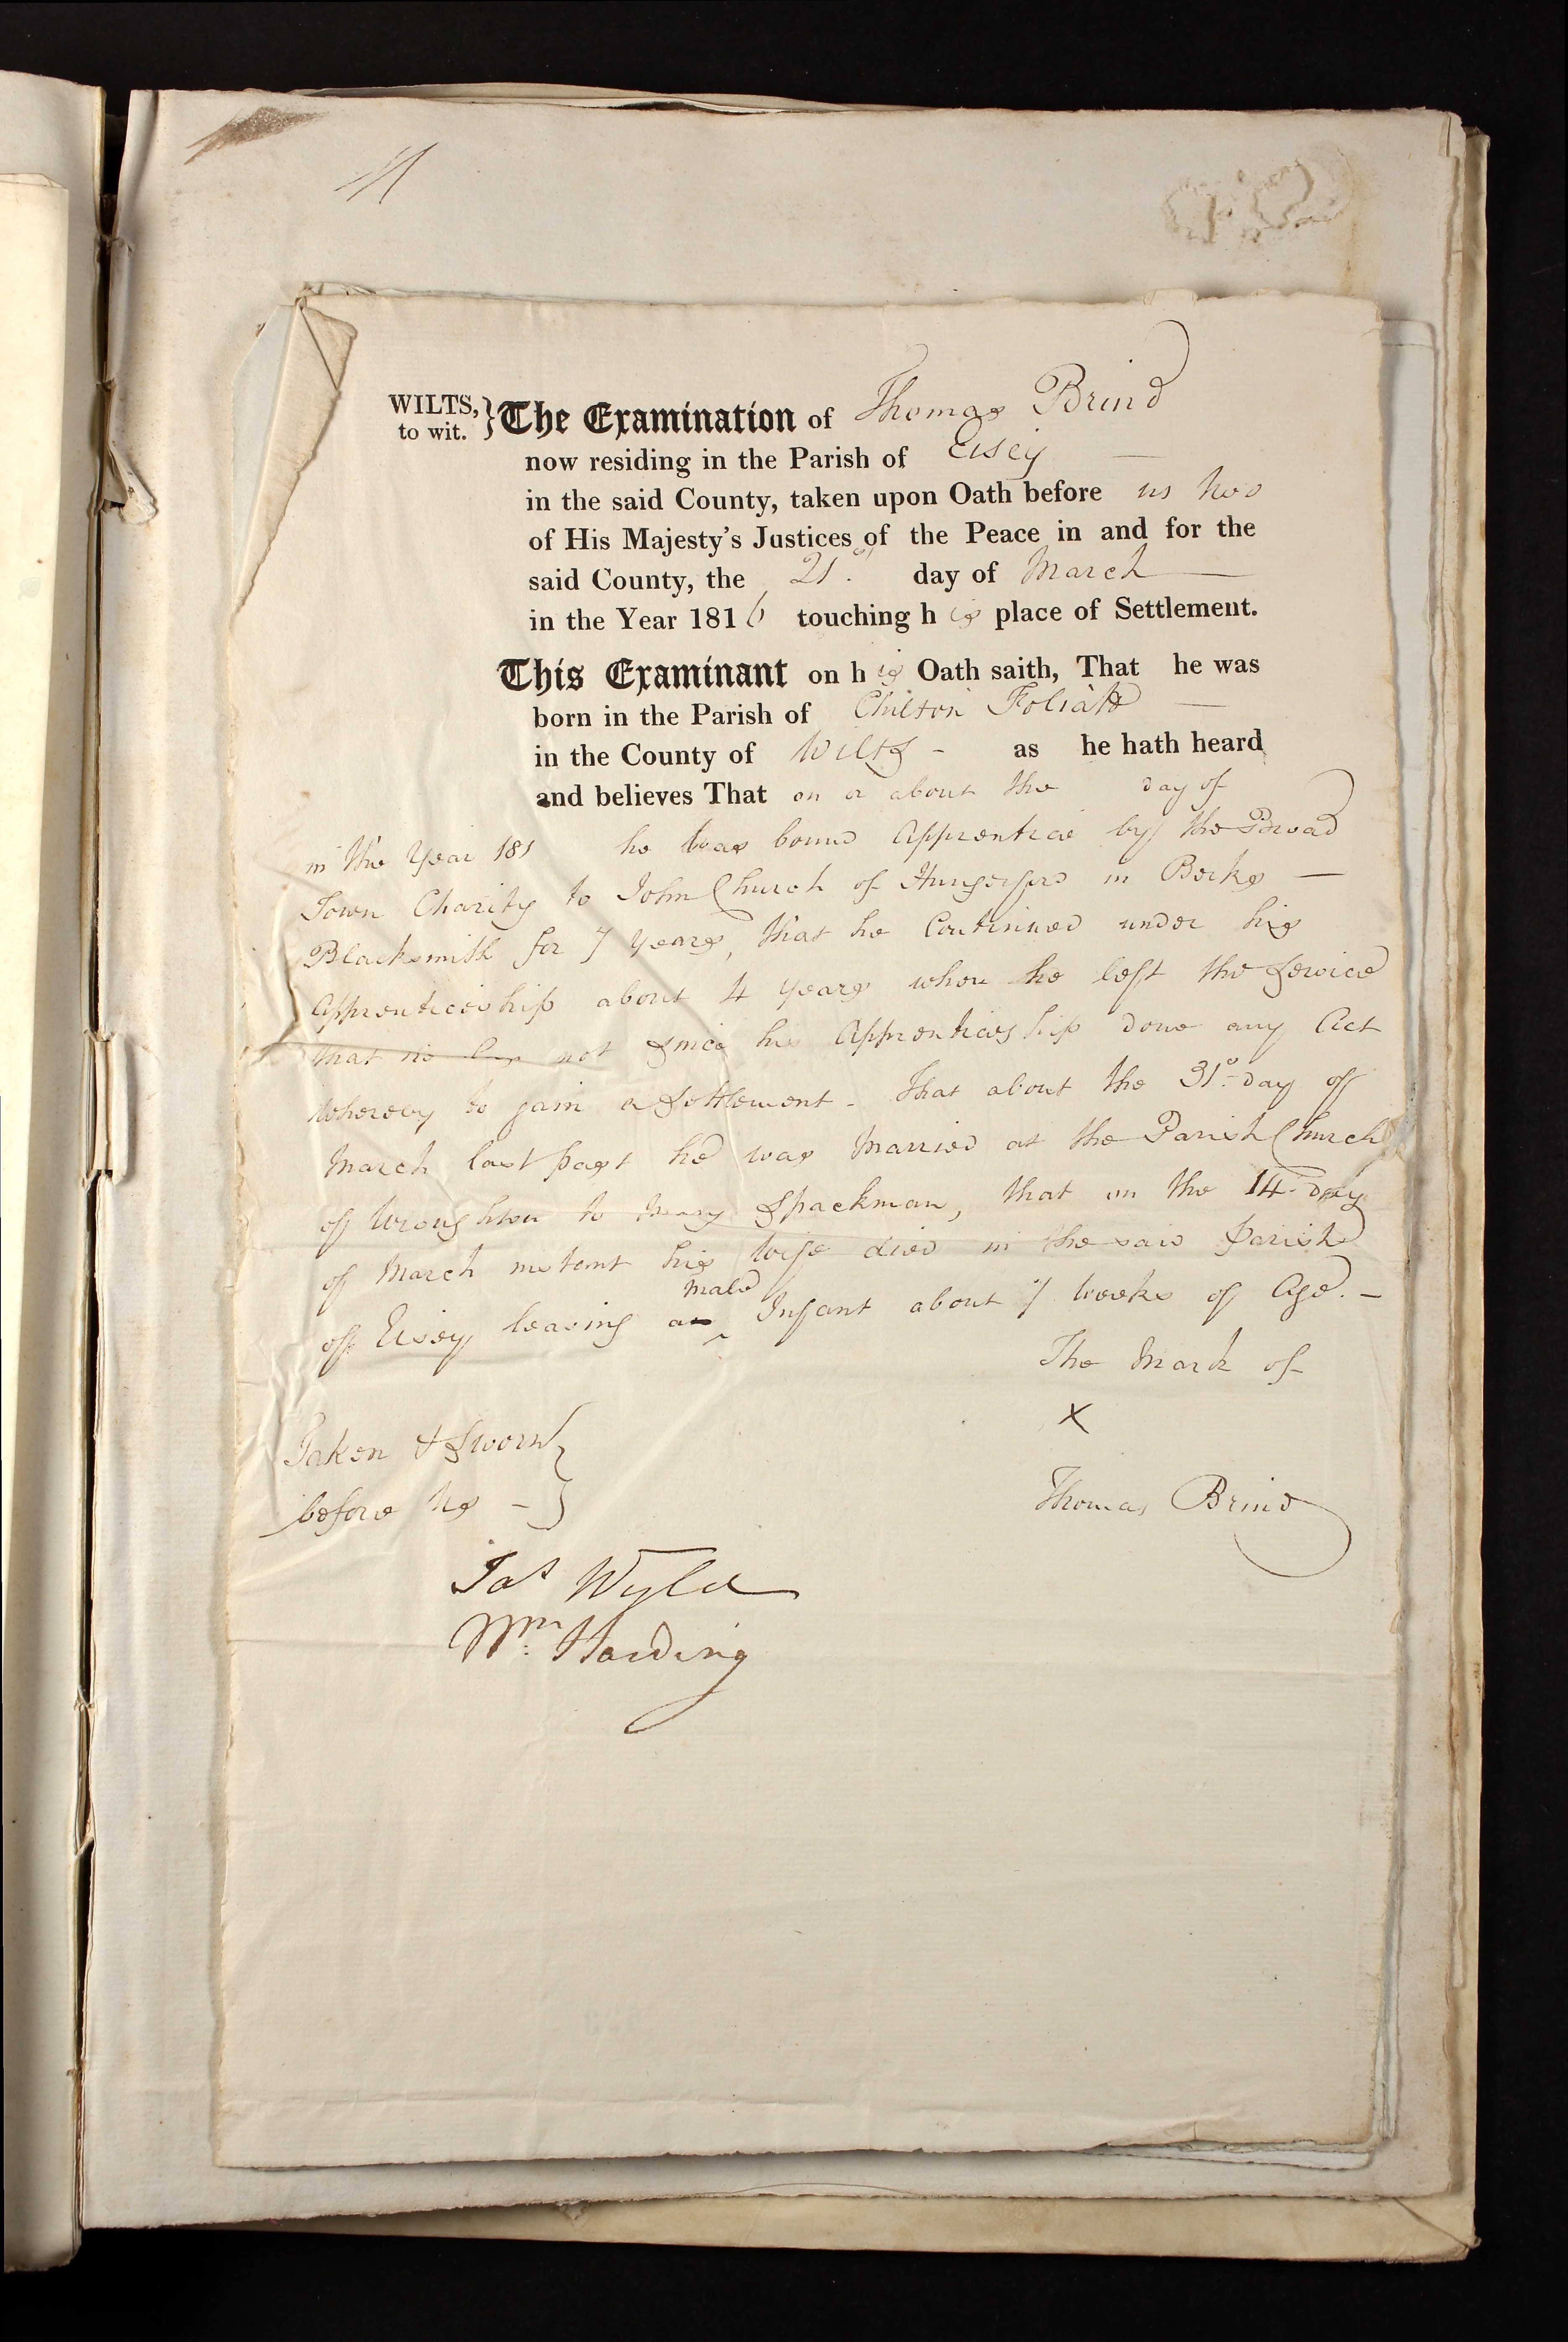 WILTS, } The Examination of Thomas Brind
to wit.
now residing in the Parish of Eisey —
in the said County, taken upon Oath before us two
of His Majesty's Justices of the Peace in and for the
said County, the 21st day of March —
in the Year 1816 touching his place of Settlement.
This Examinant on his Oath saith, That he was
born in the Parish of Chilton Foliatt —
in the County of Wilts - as he hath heard
and believes That on or about the day of
in the Year 181 he was bound Apprentice by the Broad
Town Charity to John Church of Hungerford in Berks —
Blacksmith for 7 years, that he Continued under his
Apprenticeship about 4 years when he left the Service
that not since his Apprenticeship done any Act
whereby to gain a Settlement - That about the 31st day of
March last past he was Married at the Parish Church
of Wroughton to Mary Spackman, that on the 14 day
of March instant his wife died in the said Parish
of Eisey leaving a ^ male Infant about 7 weeks of Age. —
The Mark of
X
Thomas Brind
Taken & Sworn }
before us - }
Jas Wyld
Wm: Harding